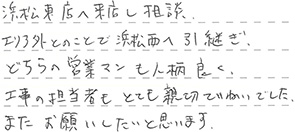 浜松東店へ来店し相談、
エリア外とのことで浜松西へ引継ぎ。
どちらの営業マンも人柄良く、
工事の担当者もとても親切ていねいでした。
またお願いしたいと思います。